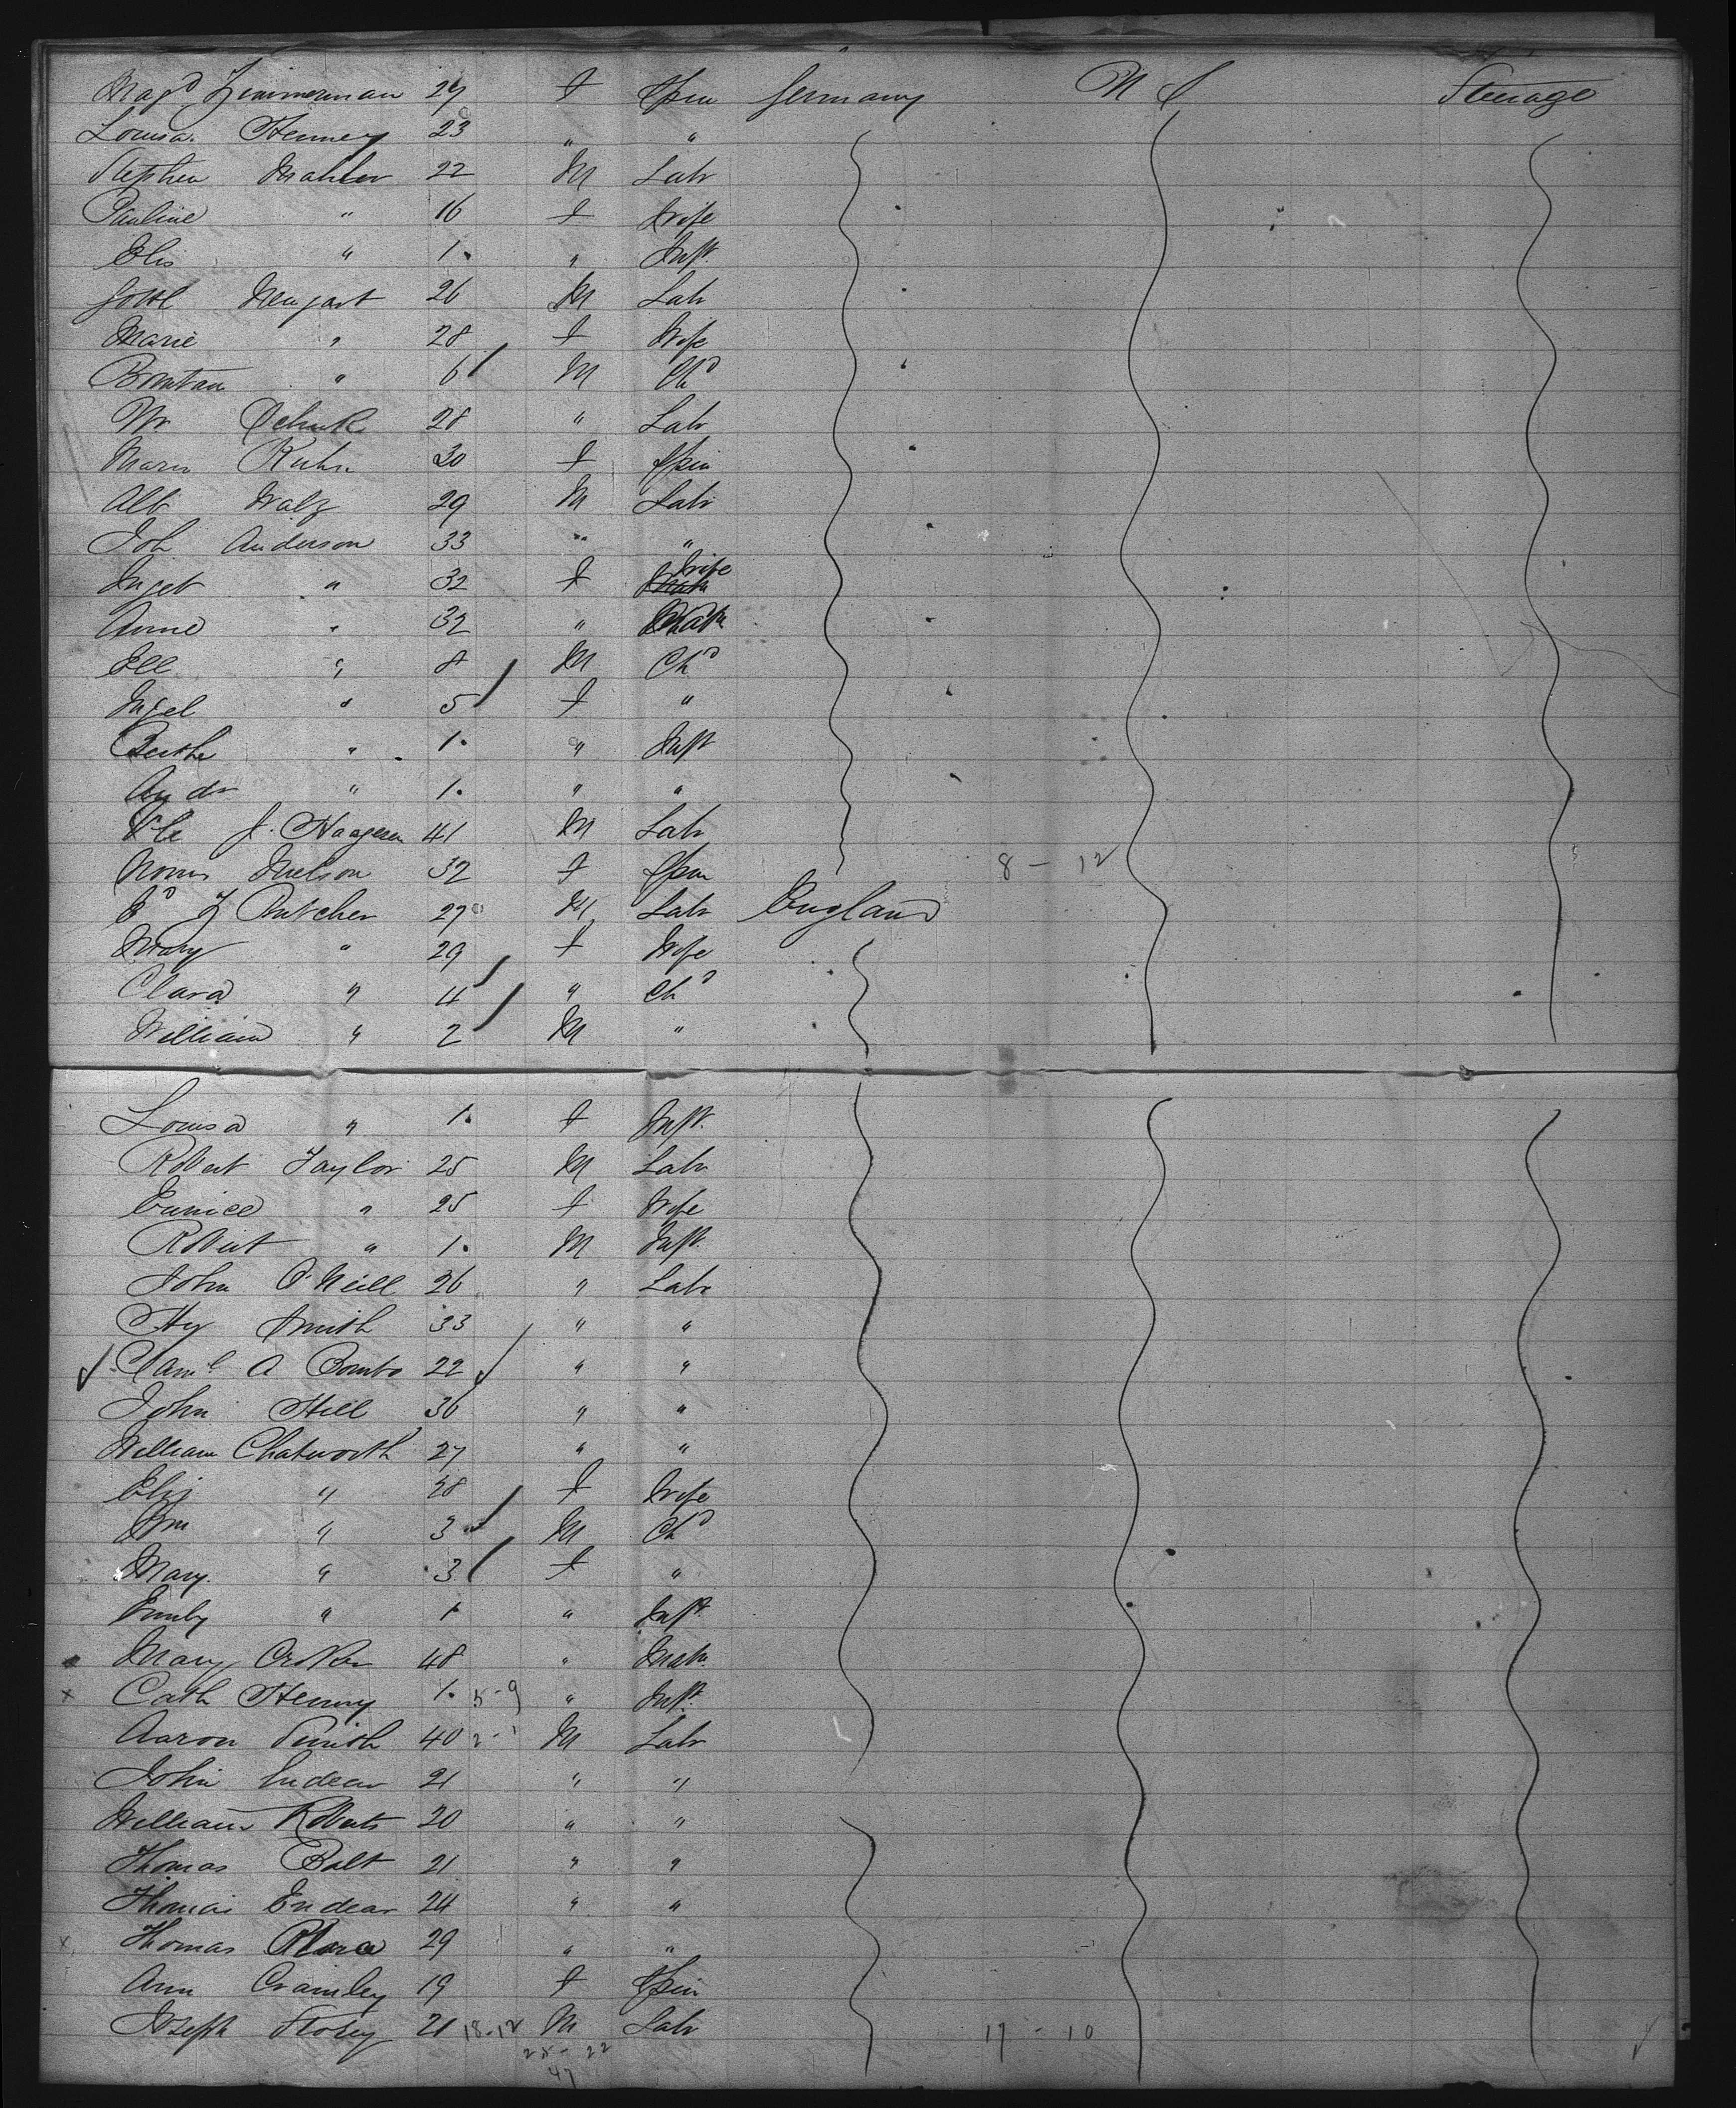 Magd Zimmerman 29 f Spin Germany U S Steerage
Louisa Henney 23 " "
Stephen Mahler 22 M Labr
Pauline " 16 f Wife
Elis " 1. " Inft
Gottl Neugart 26 M Labr
Marie " 28 f Wife
" 6 M Chd
Wm Schuk 28 " Labr
Maria Kuhn 30 f Spin
Alb Walz 29 M Labr
Joh Anderson 33 " "
Wife
Ingeb " 32 f
Anne " 32 " Matn
Ell " 8 M Chd
Ingel " 5 f "
Berthe " 1. " Inft
Andr " 1. " "
Ole J. Haagesen 41 M Labr
Nielson 32 f Spin 8 - 12
Butcher 27 M Labr England
Mary " 29 f Wife
Clara " 4 " Chd
William " 2 M "
Louisa " 1. f Inft
Robert Taylor 25 M Labr
Eunice " 25 f Wife
Robert " 1. M Inft
John O'Neill 26 " Labr
Hy Smith 33 " "
Saml A Combo 22 " "
John Hill 36 " "
William Chatworth 27 " "
Eliz " 28 f Wife
Wm " 3 M Chd
Mary " 3 f "
Emily " 1 " Inft
Mary Croker 48 " Matn
x Cath Henny 1. 5-9 " Inft
Aaron Smith 40 2-1 M Labr
John Endean 21 " "
William Roberts 20 " "
Thomas Bolt 21 " "
Thomas Endean 24 " "
x Thomas 29 " "
Ann Cramley 19 f Spin
Joseph Storey 21 18-12 M Labr 17 - 10
25 - 22
47